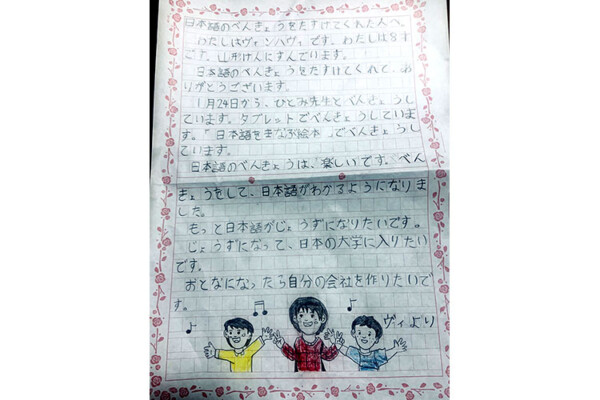 日本語のべんきょうをたすけてくれた人へ。
わたしはヴィンハヴィです。わたしは8才
です。山形けんにすんでいます。
日本語のべんきょうをたすけてくれて、あ
りがとうございます。
1月24日から、ひとみ先生とべんきょうし
ています。タブレットでべんきょうしていま
す。「日本語をまなぶ絵本」でべんきょうし
ています。
日本語のべんきょうは、楽しいです。べん
きょうをして、日本語がわかるようになりま
した。
もっと日本語がじょうずになりたいです。
じょうずになって、日本の大学に入りたい
です。
おとなになったら自分の会社を作りたいで
す。
ヴィより